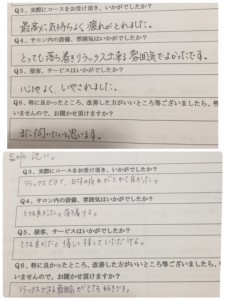 Q3、実際にコースをお受け頂き、いかがでしたか？
最高に気持ちよく疲れがとれました。
Q4、サロン内の設備、雰囲気はいかがでしたか？
とっても落ち着きリラックス出来る雰囲気でよかったです。
Q5、接客、サービスはいかがでしたか？
心地よく、いやされました。
Q6、特に良かったところ、改善した方がいいところ等ございましたら、
いませんので、お聞かせ頂けますか？
また伺いたいと思います。
Q3、実際にコースをお受け頂き、いかがでしたか？
リラックスできて、お体の疲れがとれて良かった。
Q4、サロン内の設備、雰囲気はいかがでしたか？
とても良かった。落ち着ける。
Q5、接客、サービスはいかがでしたか？
とても良かった
Q6、特に良かったところ、改善した方がいいところ等ございまし
いませんので、お聞かせ頂けますか？
リラックスできる雰囲気がとても好きです。